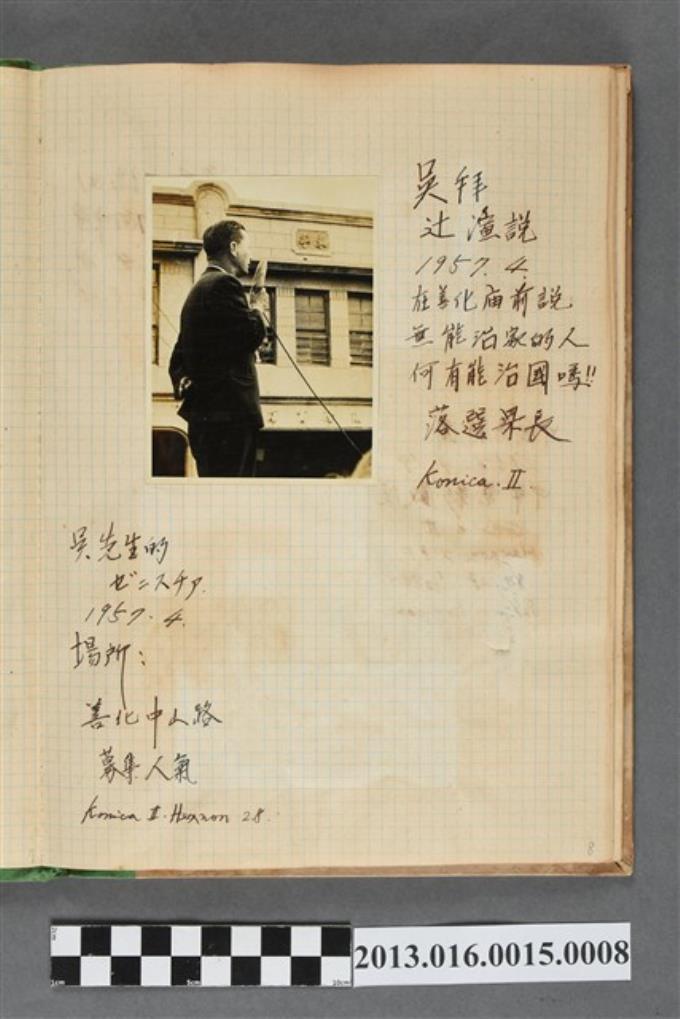 吳拜
辻演說
1957.4.
在善化庙前說
無能治家的人
何有能治國嗎!!
落選県長
Konica.II.
吳先生的
ゼニスチァ.
1957.4.
場所：
善化中山路
募集人氣
Konica II. Hexanon 28.
8
1cm 5cm 10cm
2013.016.0015.0008